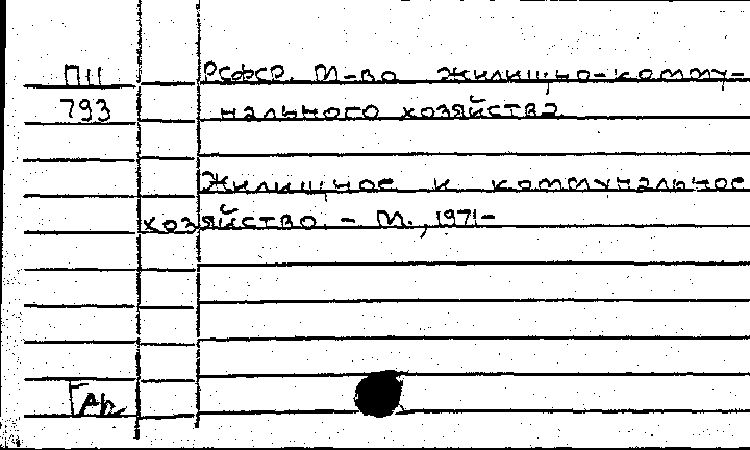 П11 РСФСР. М-во жилищно-комму-
793 нального хозяйства.
Жилищное и коммунальное
хозяйство. - М., 1971-